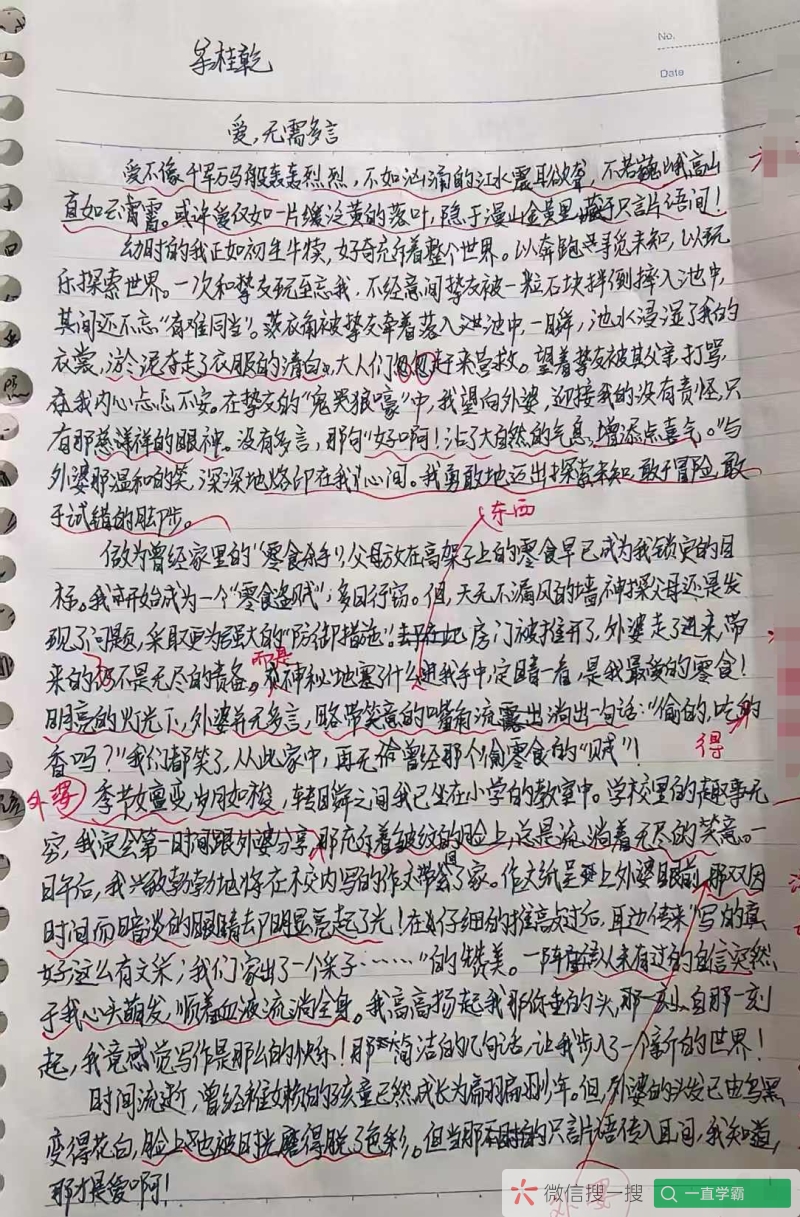 No.
Date
桂乾
爱,无需多言
爱不像千军万马般轰轰烈烈,不如汹涌的江水震耳欲聋,不若巍峨高山
直如云霄。或许爱仅如一片缓泛黄的落叶,隐于漫山金黄里,藏于只言片语间!
幼时的我正如初生牛犊,好奇充斥着整个世界。以奔跑寻觅未知,以玩
乐探索世界。一次和挚友玩至忘我,不经意间挚友被一粒石块拌倒摔入池中,
其间还不忘“有难同当”。我衣角被挚友牵着落入泄池中,一瞬,池水浸湿了我的
衣裳,淤泥夺走了衣服的清白。大人们匆忽赶来营救。望着挚友被其父亲打骂,
在我内心忐忑不安。在挚友的“鬼哭狼嚎”中,我望向外婆,迎接我的没有责怪,只
有那慈祥样的眼神。没有多言,那句“好啊!沾了大自然的气息,增添点喜气。”与
外婆那温和的笑,深深地烙印在我心间。我勇敢地迈出探索未知,敢于冒险,敢
于试错的脚步。
东西
做为曾经家里的“零食杀手”,父母放在高架子上的零食早已成为我锁定的目
标。我开始成为一个“零食盗贼”;多日行窃。但,天无不漏风的墙,神探父母还是发
现了问题,采取更为强大的“防御措施”。房门被推开了,外婆走了进来,带
来的不是无尽的责备。而是神秘地塞了什么进我手中,定睛一看,是我最爱的零食!
明亮的灯光下,外婆并无多言,略带笑意的嘴角流淌出一句话:“偷的,吃的
香吗?”我们都笑了,从此家中,再无曾经那个偷零食的“贼”!
得
外婆
季节嬗变,岁月如梭,转瞬之间我已坐在小学的教室中。学校里的趣事无
穷,我定会第一时间跟外婆分享,那充斥着皱纹的脸上,总是流淌着无尽的笑意。一
日午后,我兴致勃勃地将在校内写的作文带回了家。作文纸呈上外婆眼前,那双因
时间而暗淡的眼睛却明显亮起了光!在仔细的推敲过后,耳边传来“写的真
好,这么有文采;我们家出了一个才子……”的赞美。一阵从未有过的自信突然
于我心头萌发,顺着血液流淌全身。我高高扬起我那低垂的头,那一刻,自那一刻
起,我竟感觉写作是那么的快乐!那简洁的几句话,让我步入了一个新的世界!
时间流逝,曾经稚嫩的孩童已然成长为翩翩少年。但,外婆的头发已由乌黑
变得花白,脸上也被时光磨得脱了色彩。但当那的只言片语传入耳间,我知道,
那才是爱啊!
外婆
微信搜一搜
一直学霸